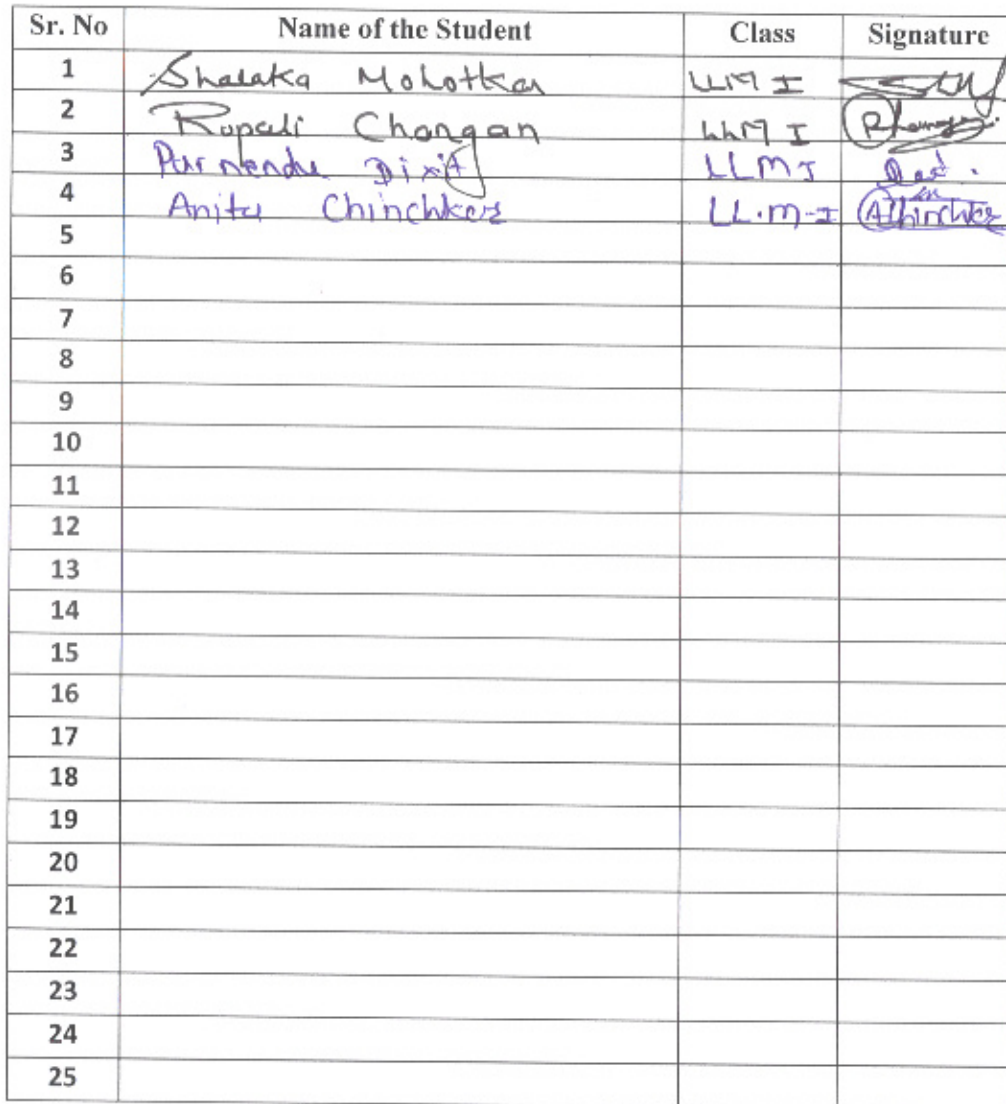 Sr. No Name of the Student Class Signature
1 Shalaka Mohotkar LLM I
2 Rupali Changan LLM I
3 Purnendu Dixit LLM I
4 Anita Chinchker LL.M-I AChinchker
5
6
7
8
9
10
11
12
13
14
15
16
17
18
19
20
21
22
23
24
25